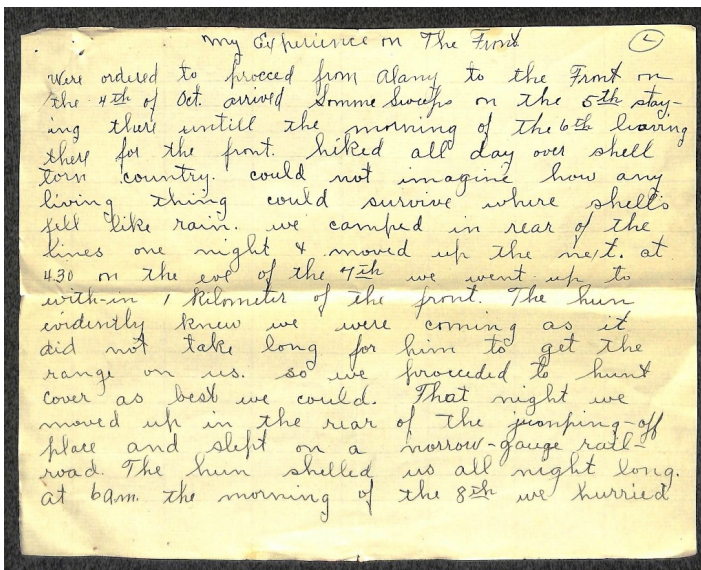 My Experience on The Front
Were ordered to proceed from Alany to the Front on
the 4th of Oct. arrived Somme Sweeps on the 5th stay-
ing there untill the morning of the 6th leaving
there for the front. hiked all day over shell
torn country. could not imagine how any
living thing could survive where shells
fell like rain. we camped in rear of the
lines one night & moved up the next. at
430 on the eve of the 7th we went up to
with-in 1 Kilometer of the front. The hun
evidently knew we were coming as it
did not take long for him to get the
range on us. so we proceeded to hunt
cover as best we could. That night we
moved up in the rear of the jumping-off
place and slept on a norrow-gauge rail-
road. The hun shelled us all night long.
at 6am. the morning of the 8th we hurried